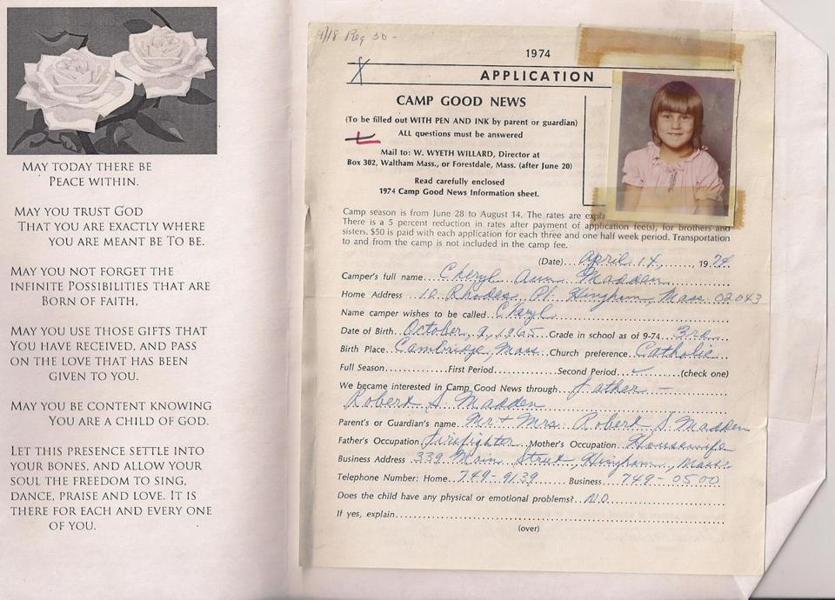 MAY TODAY THERE BE
PEACE WITHIN.
MAY YOU TRUST GOD
THAT YOU ARE EXACTLY WHERE
YOU ARE MEANT BE TO BE.
MAY YOU NOT FORGET THE
INFINITE POSSIBILITIES THAT ARE
BORN OF FAITH.
MAY YOU USE THOSE GIFTS THAT
YOU HAVE RECEIVED, AND PASS
ON THE LOVE THAT HAS BEEN
GIVEN TO YOU.
MAY YOU BE CONTENT KNOWING
YOU ARE A CHILD OF GOD.
LET THIS PRESENCE SETTLE INTO
YOUR BONES, AND ALLOW YOUR
SOUL THE FREEDOM TO SING,
DANCE, PRAISE AND LOVE. IT IS
THERE FOR EACH AND EVERY ONE
OF YOU.
Reg 50 -
1974
X
APPLICATION
CAMP GOOD NEWS
(To be filled out WITH PEN AND INK by parent or guardian)
ALL questions must be answered
Mail to: W. WYETH WILLARD, Director at
Box 302, Waltham Mass., or Forestdale, Mass. (after June 20)
Read carefully enclosed
1974 Camp Good News Information sheet.
Camp season is from June 28 to August 14. The rates are expla
There is a 5 percent reduction in rates after payment of application fee(s), for brothers and
sisters. $50 is paid with each application for each three and one half week period. Transportation
to and from the camp is not included in the camp fee.
(Date) April 14, 1974
Camper's full name Cheryl Ann Madden
Home Address 10 Rhodes Pl. Hingham, Mass 02043
Name camper wishes to be called Cheryl
Date of Birth October 9, 1965 Grade in school as of 9-74 3rd
Birth Place Cambridge, Mass Church preference Catholic
Full Season First Period Second Period ✓ (check one)
We became interested in Camp Good News through father -
Robert S. Madden
Parent's or Guardian's name Mr + Mrs Robert S. Madden
Father's Occupation firefighter Mother's Occupation Housewife
Business Address 339 Main Street, Hingham, Mass.
Telephone Number: Home 749-9139 Business 749-0500
Does the child have any physical or emotional problems? NO
If yes, explain
(over)